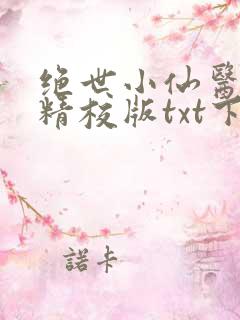 绝世小仙醫
精校版txt下
諾卡